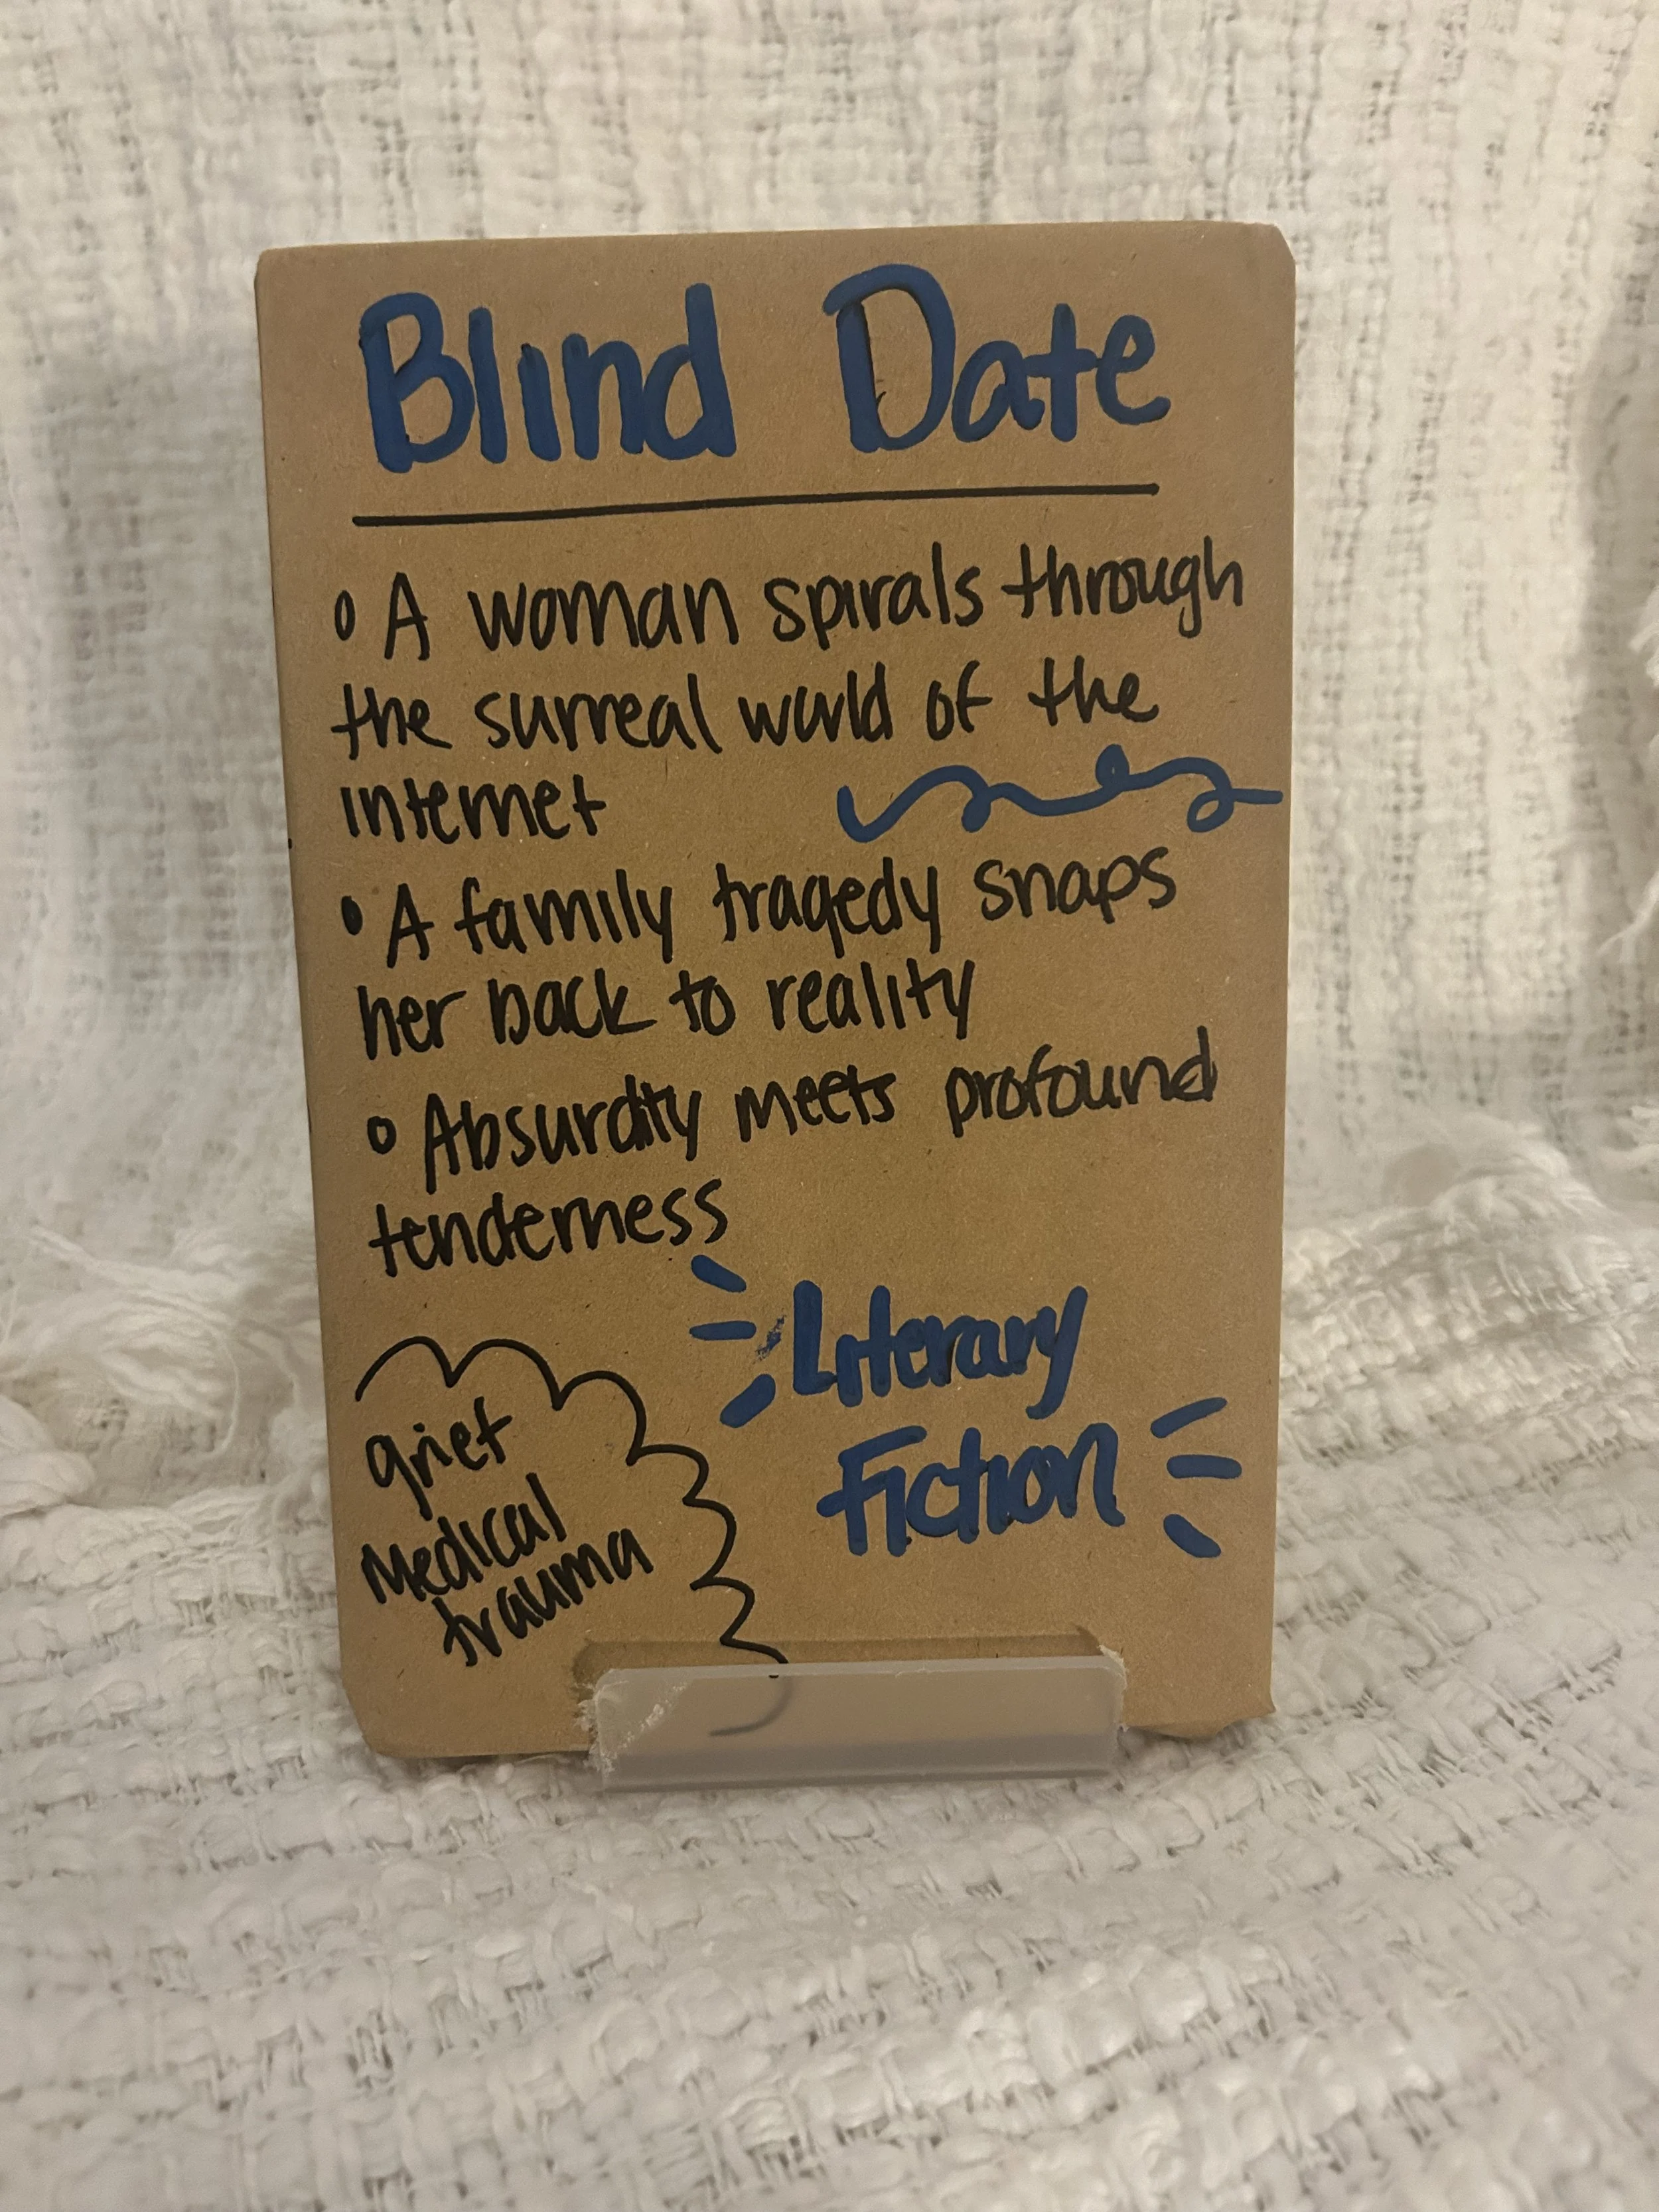 Blind Date
• A woman spirals through
the surreal world of the
internet
• A family tragedy snaps
her back to reality
• Absurdity meets profound
tenderness
Literary
Fiction
grief
Medical
trauma